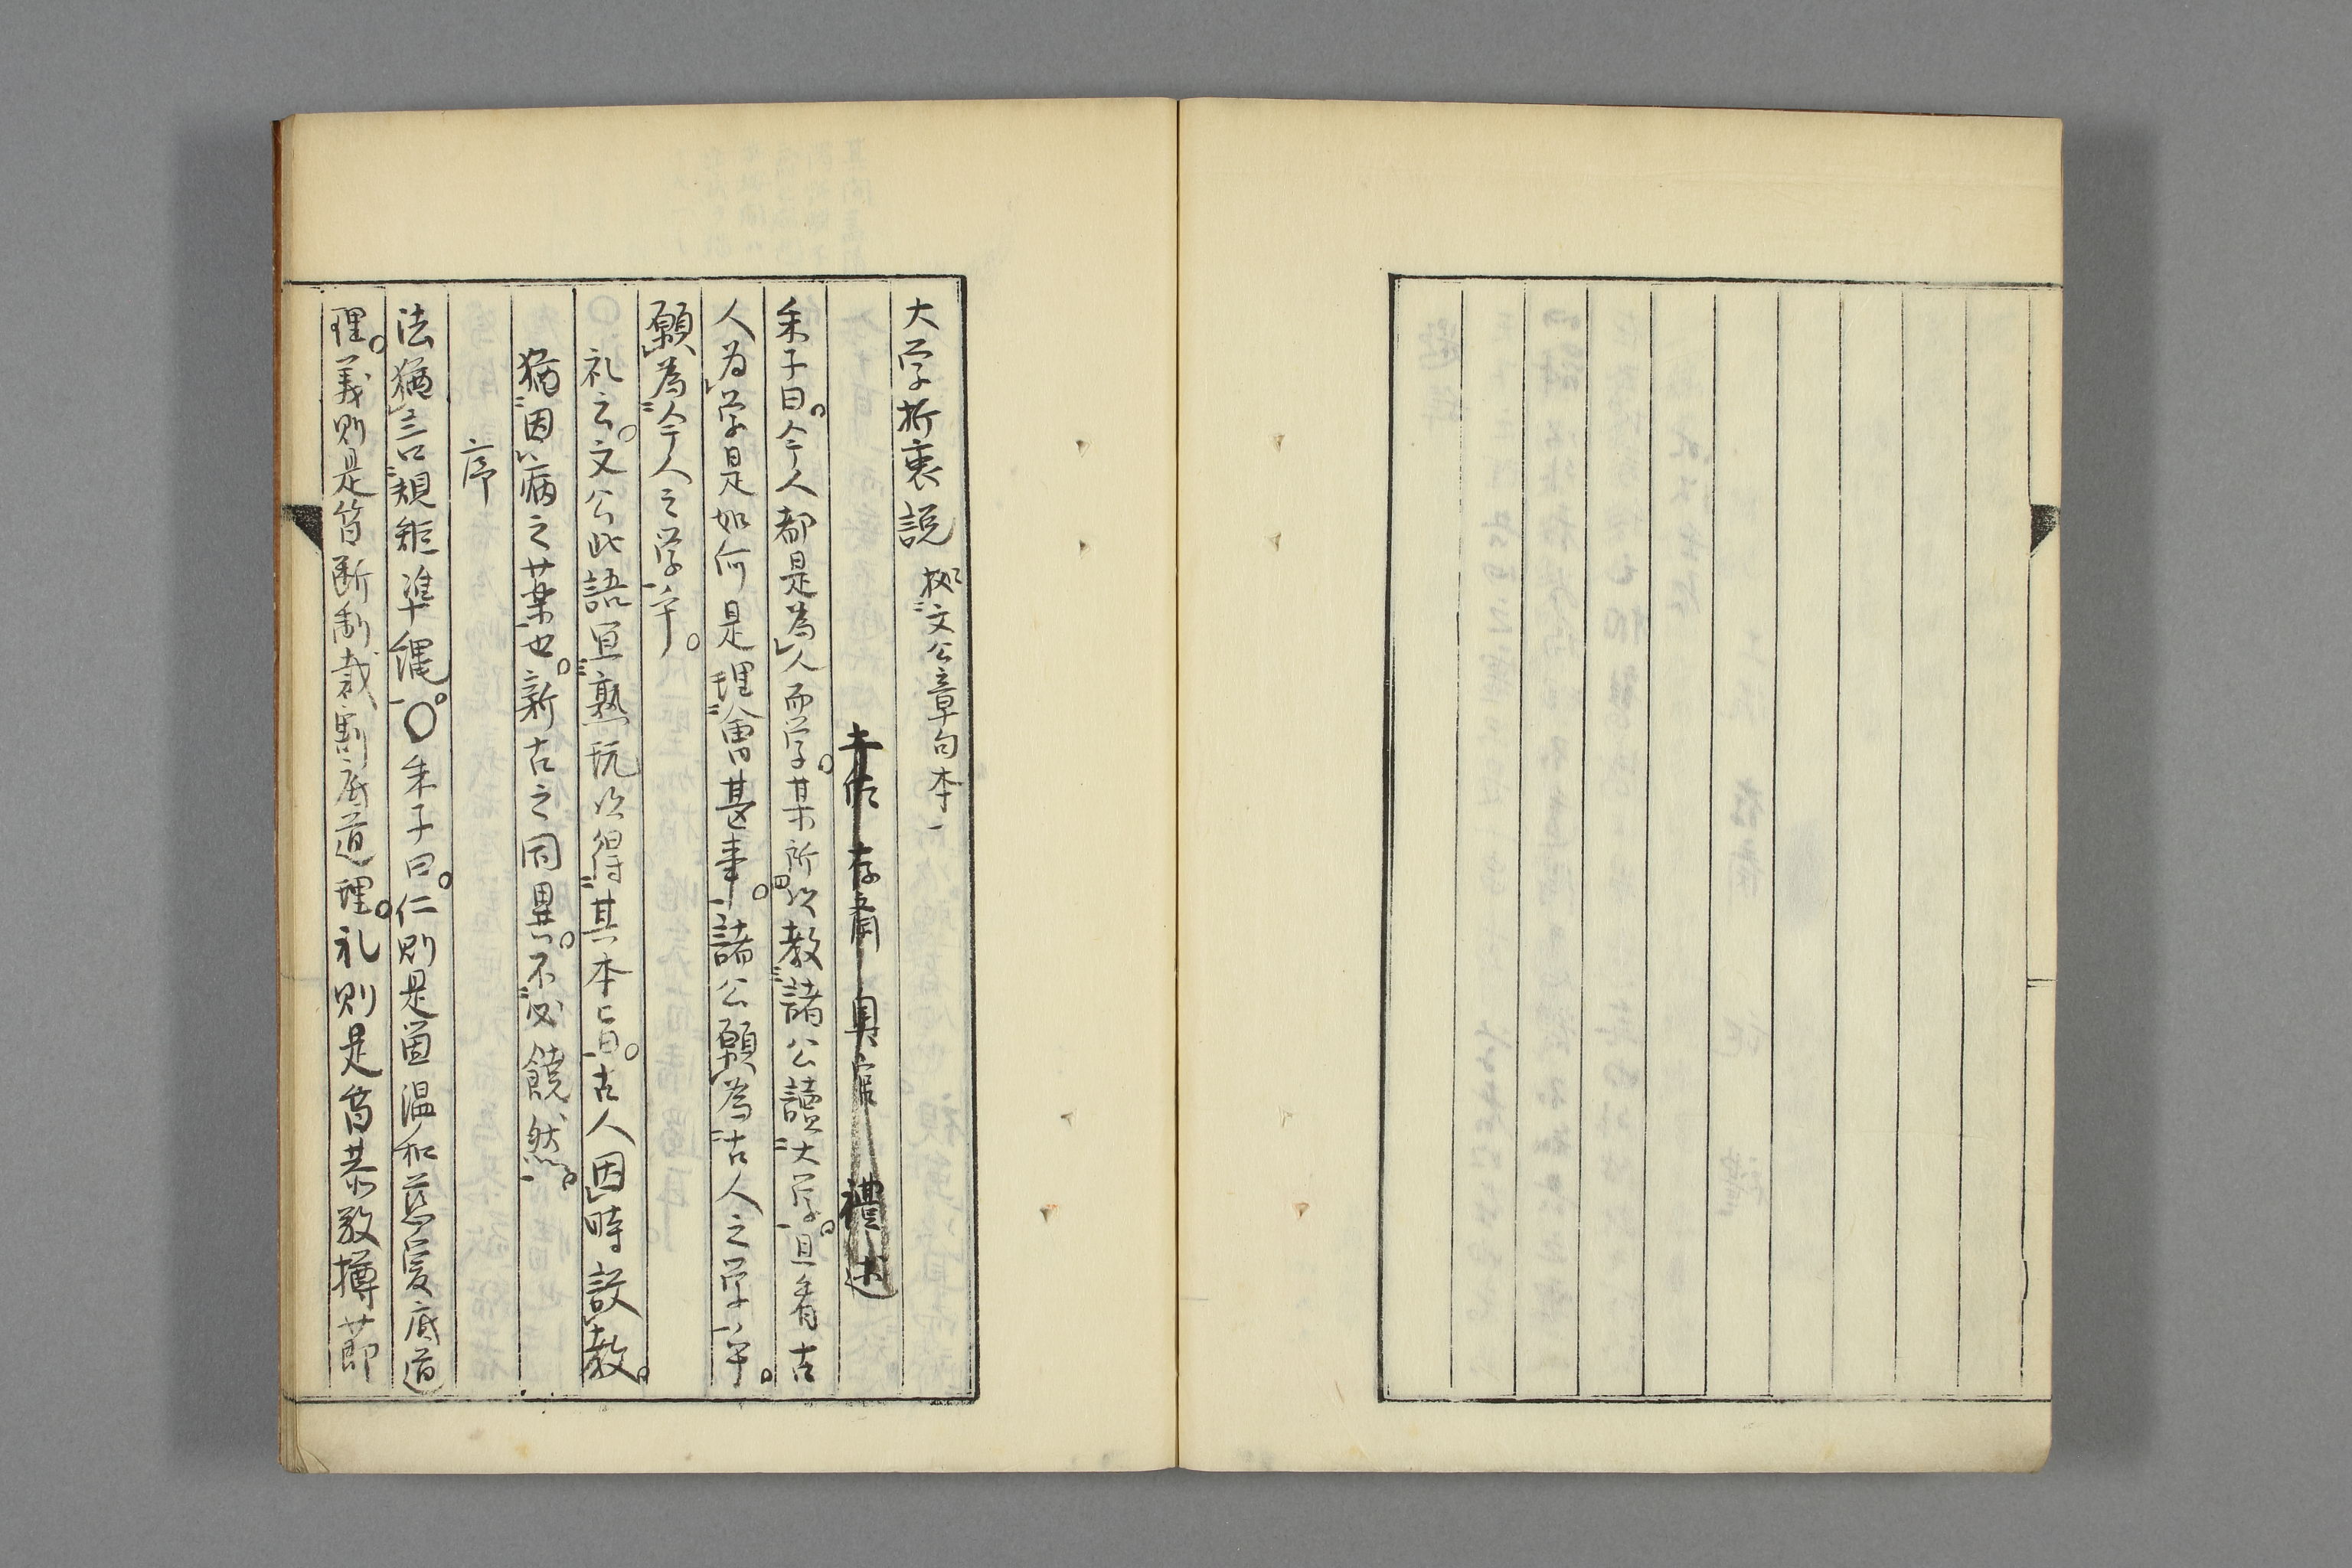 大学折衷説 拠文公章句本
土佐 存斎 奥宮 禮述
朱子曰。今人都是為人而学。某所以教諸公讀大学。且看古
人為学是如何是理會甚事。諸公願為古人之学乎。
願為今人之学乎。
礼云。文公此語宜熟玩以得其本旨。古人因時設教。
猶因病之薬也。新古之同異。不必饒然。
序
法猶言規矩準縄。〇朱子曰。仁則是箇温和慈愛底道
理。義則是箇断制裁割底道理。礼則是箇恭敬撙節